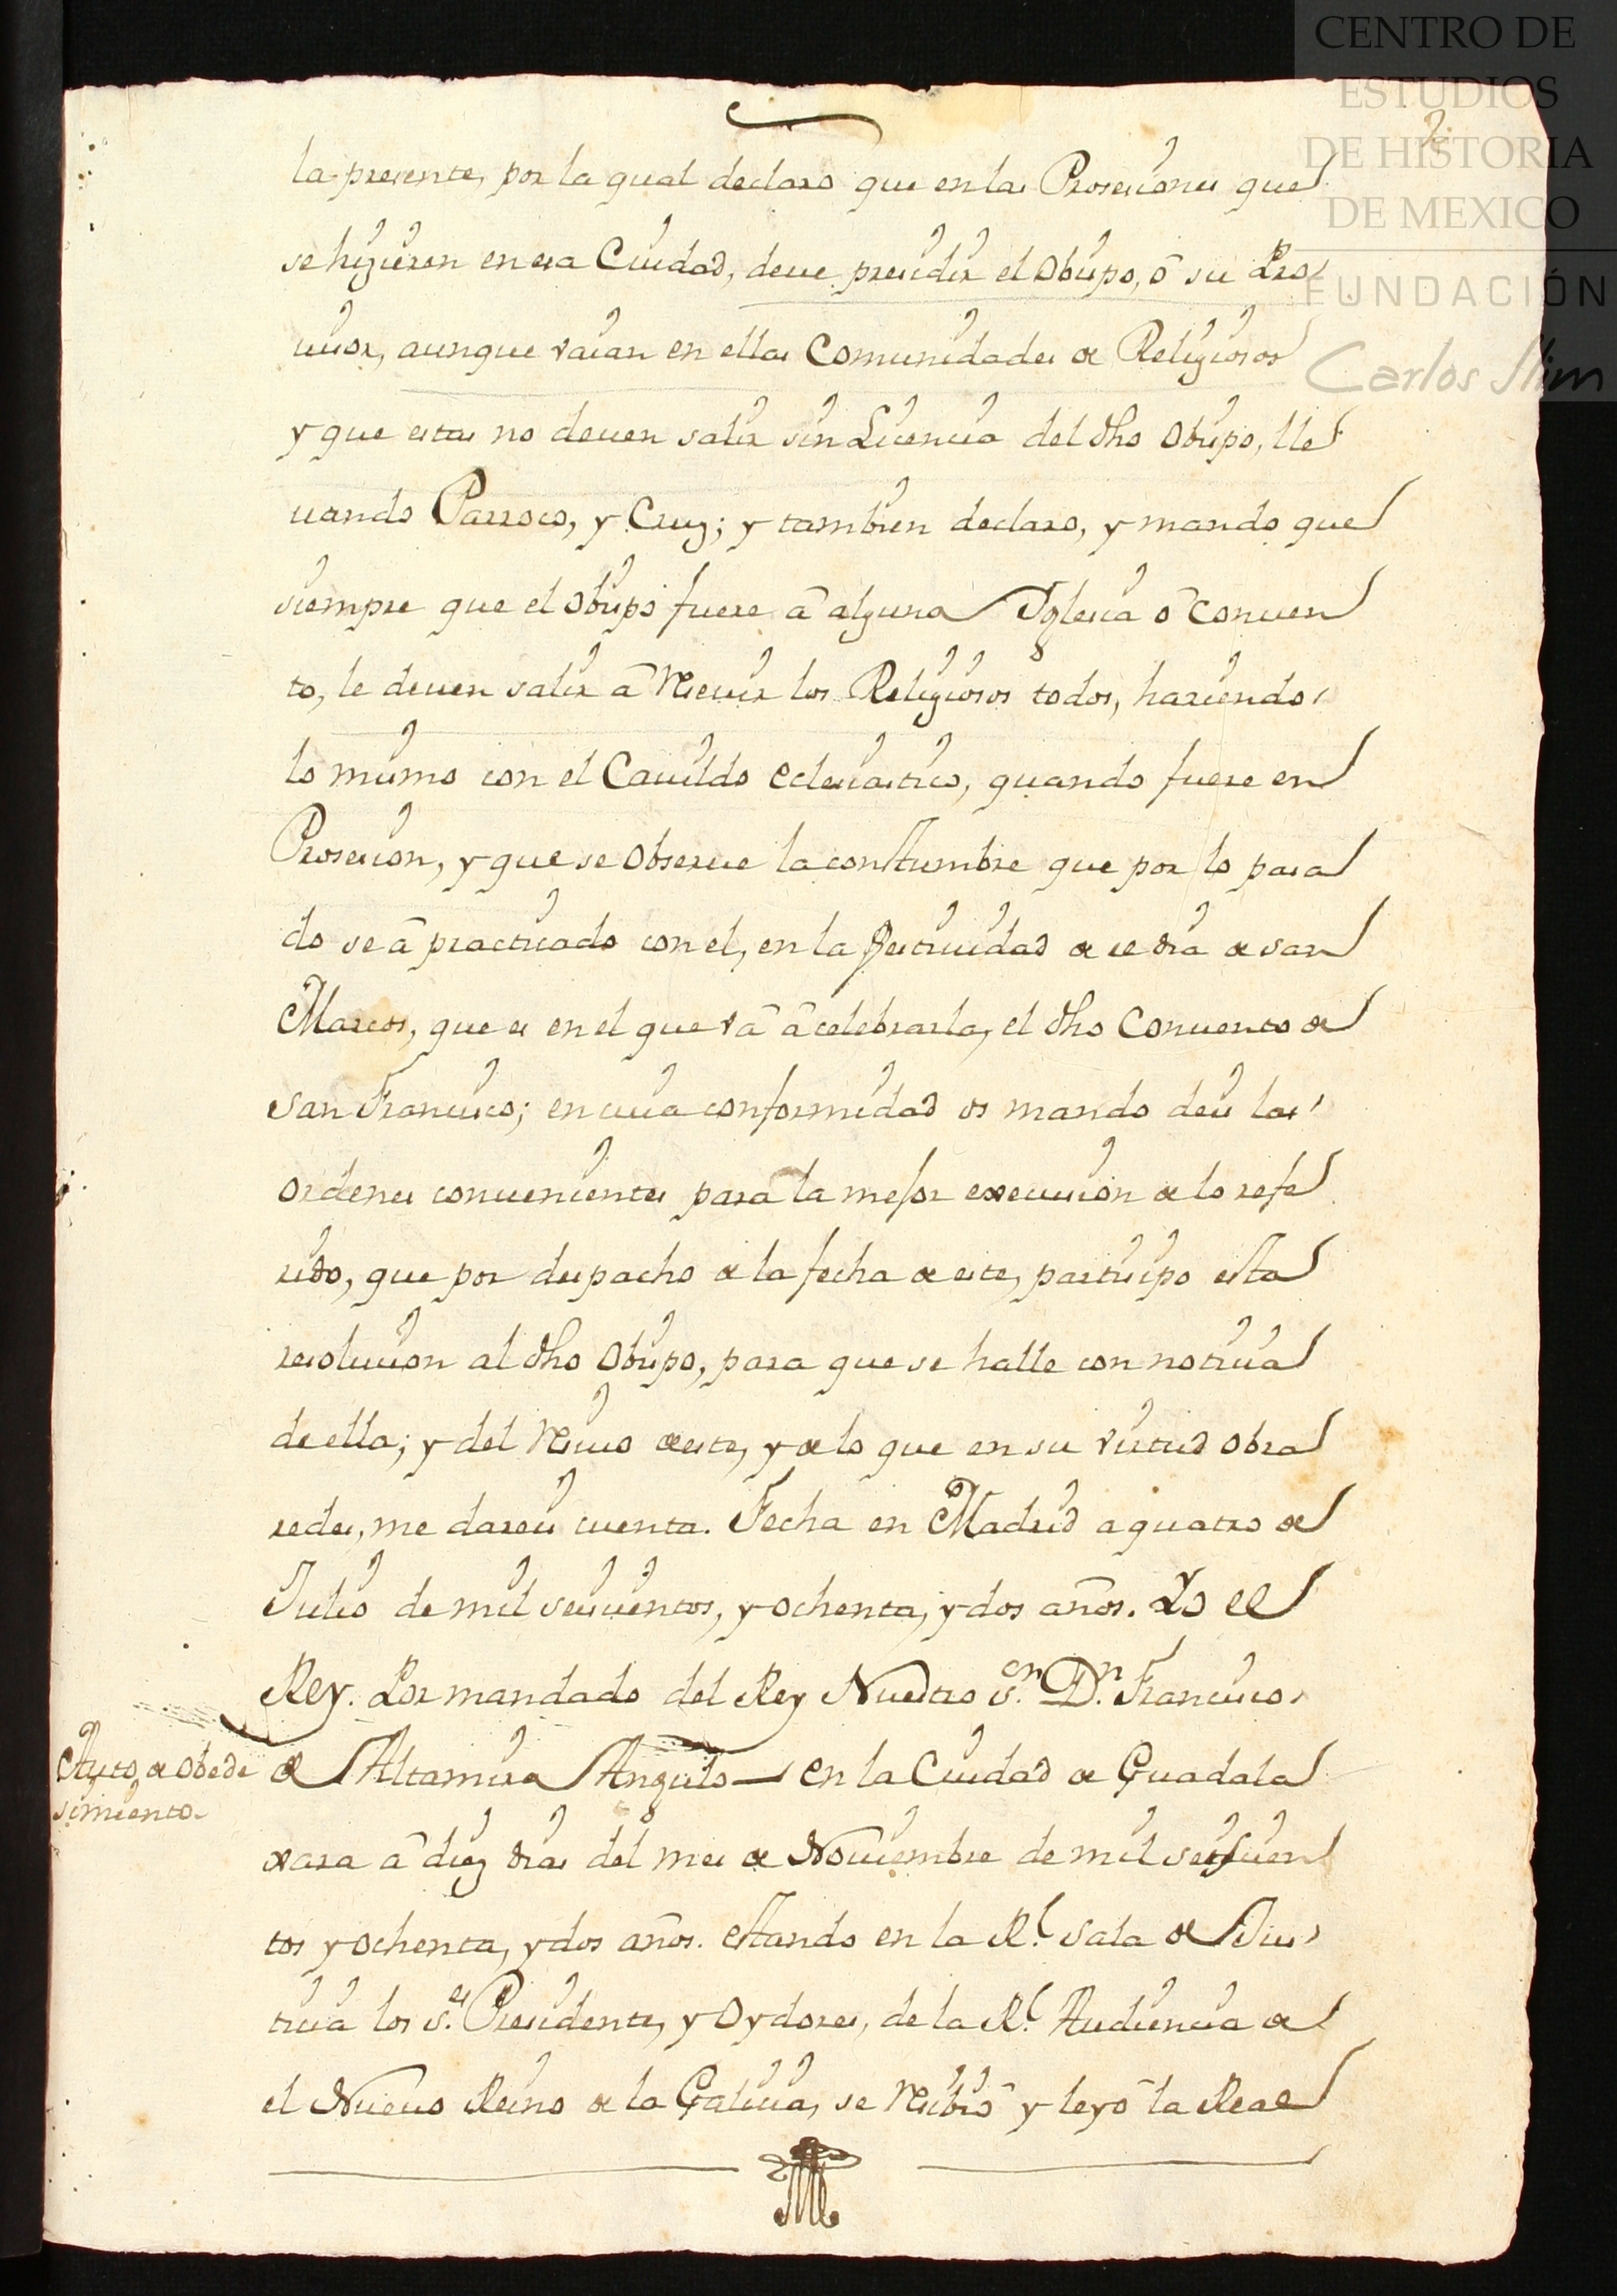 CENTRO DE
ESTUDIOS
DE HISTORIA
DE MEXICO
FUNDACIÓN
Carlos Slim
2
la presente, por la qual declaro que en las Prosesiones que
se hizieren en esa Ciudad, deve presidir el Obispo, ó su Pro
uisor, aunque vaian en ellas Comunidades de Religiosos
y que estas no deuen salir sin Licencia del dho Obispo, lle
uando Parroco, y Cruz; y tambien declaro, y mando que
siempre que el Obispo fuere á alguna Iglesia ó Conuen
to, le deuen salir á reciuir los Religiosos todos, haziendo
lo mismo con el Cauildo eclesiastico, quando fuere en
Prosesion, y que se obserue la constumbre que por lo pasa
do se á practicado con el, en la festiuidad de se dia de san
Marcos, que es en el que vá á celebrarla, el dho Conuento de
San Francisco; en cuia conformidad os mando deis las
ordenes conuenientes para la mejor execucion de lo refe
rido, que por despacho de la fecha de este, participo esta
resolucion al dho Obispo, para que se halle con noticia
de ella; y del reciuo de este, y de lo que en su virtud obra
redes, me dareis cuenta. Fecha en Madrid a quatro de
Julio de mil seiscientos, y ochenta, y dos años. Yo el
Rey. Por mandado del Rey Nuestro S.r D.n Francisco
de Altamira Angulo — en la Ciudad de Guadala
Auto de obede
simiento
xara á diez dias del mes de Nouiembre de mil seiscien
tos y ochenta, y dos años. estando en la R.l Sala de Jus
ticia los S.es Presidente, y Oydores, de la R.l Audiencia de
el Nueuo Reino de la Galicia, se recibió y leyó la Real